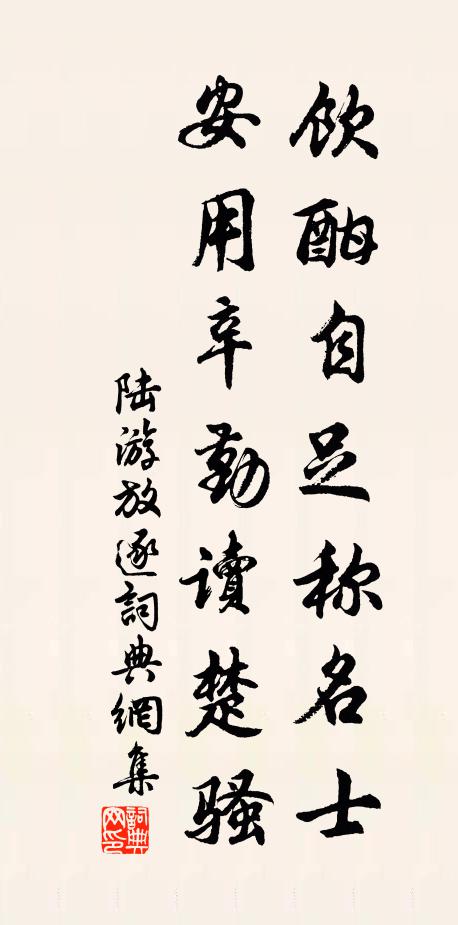 饮酣自足称名士
安用辛勤读楚骚
陆游放逐詞典網集
詞典网印